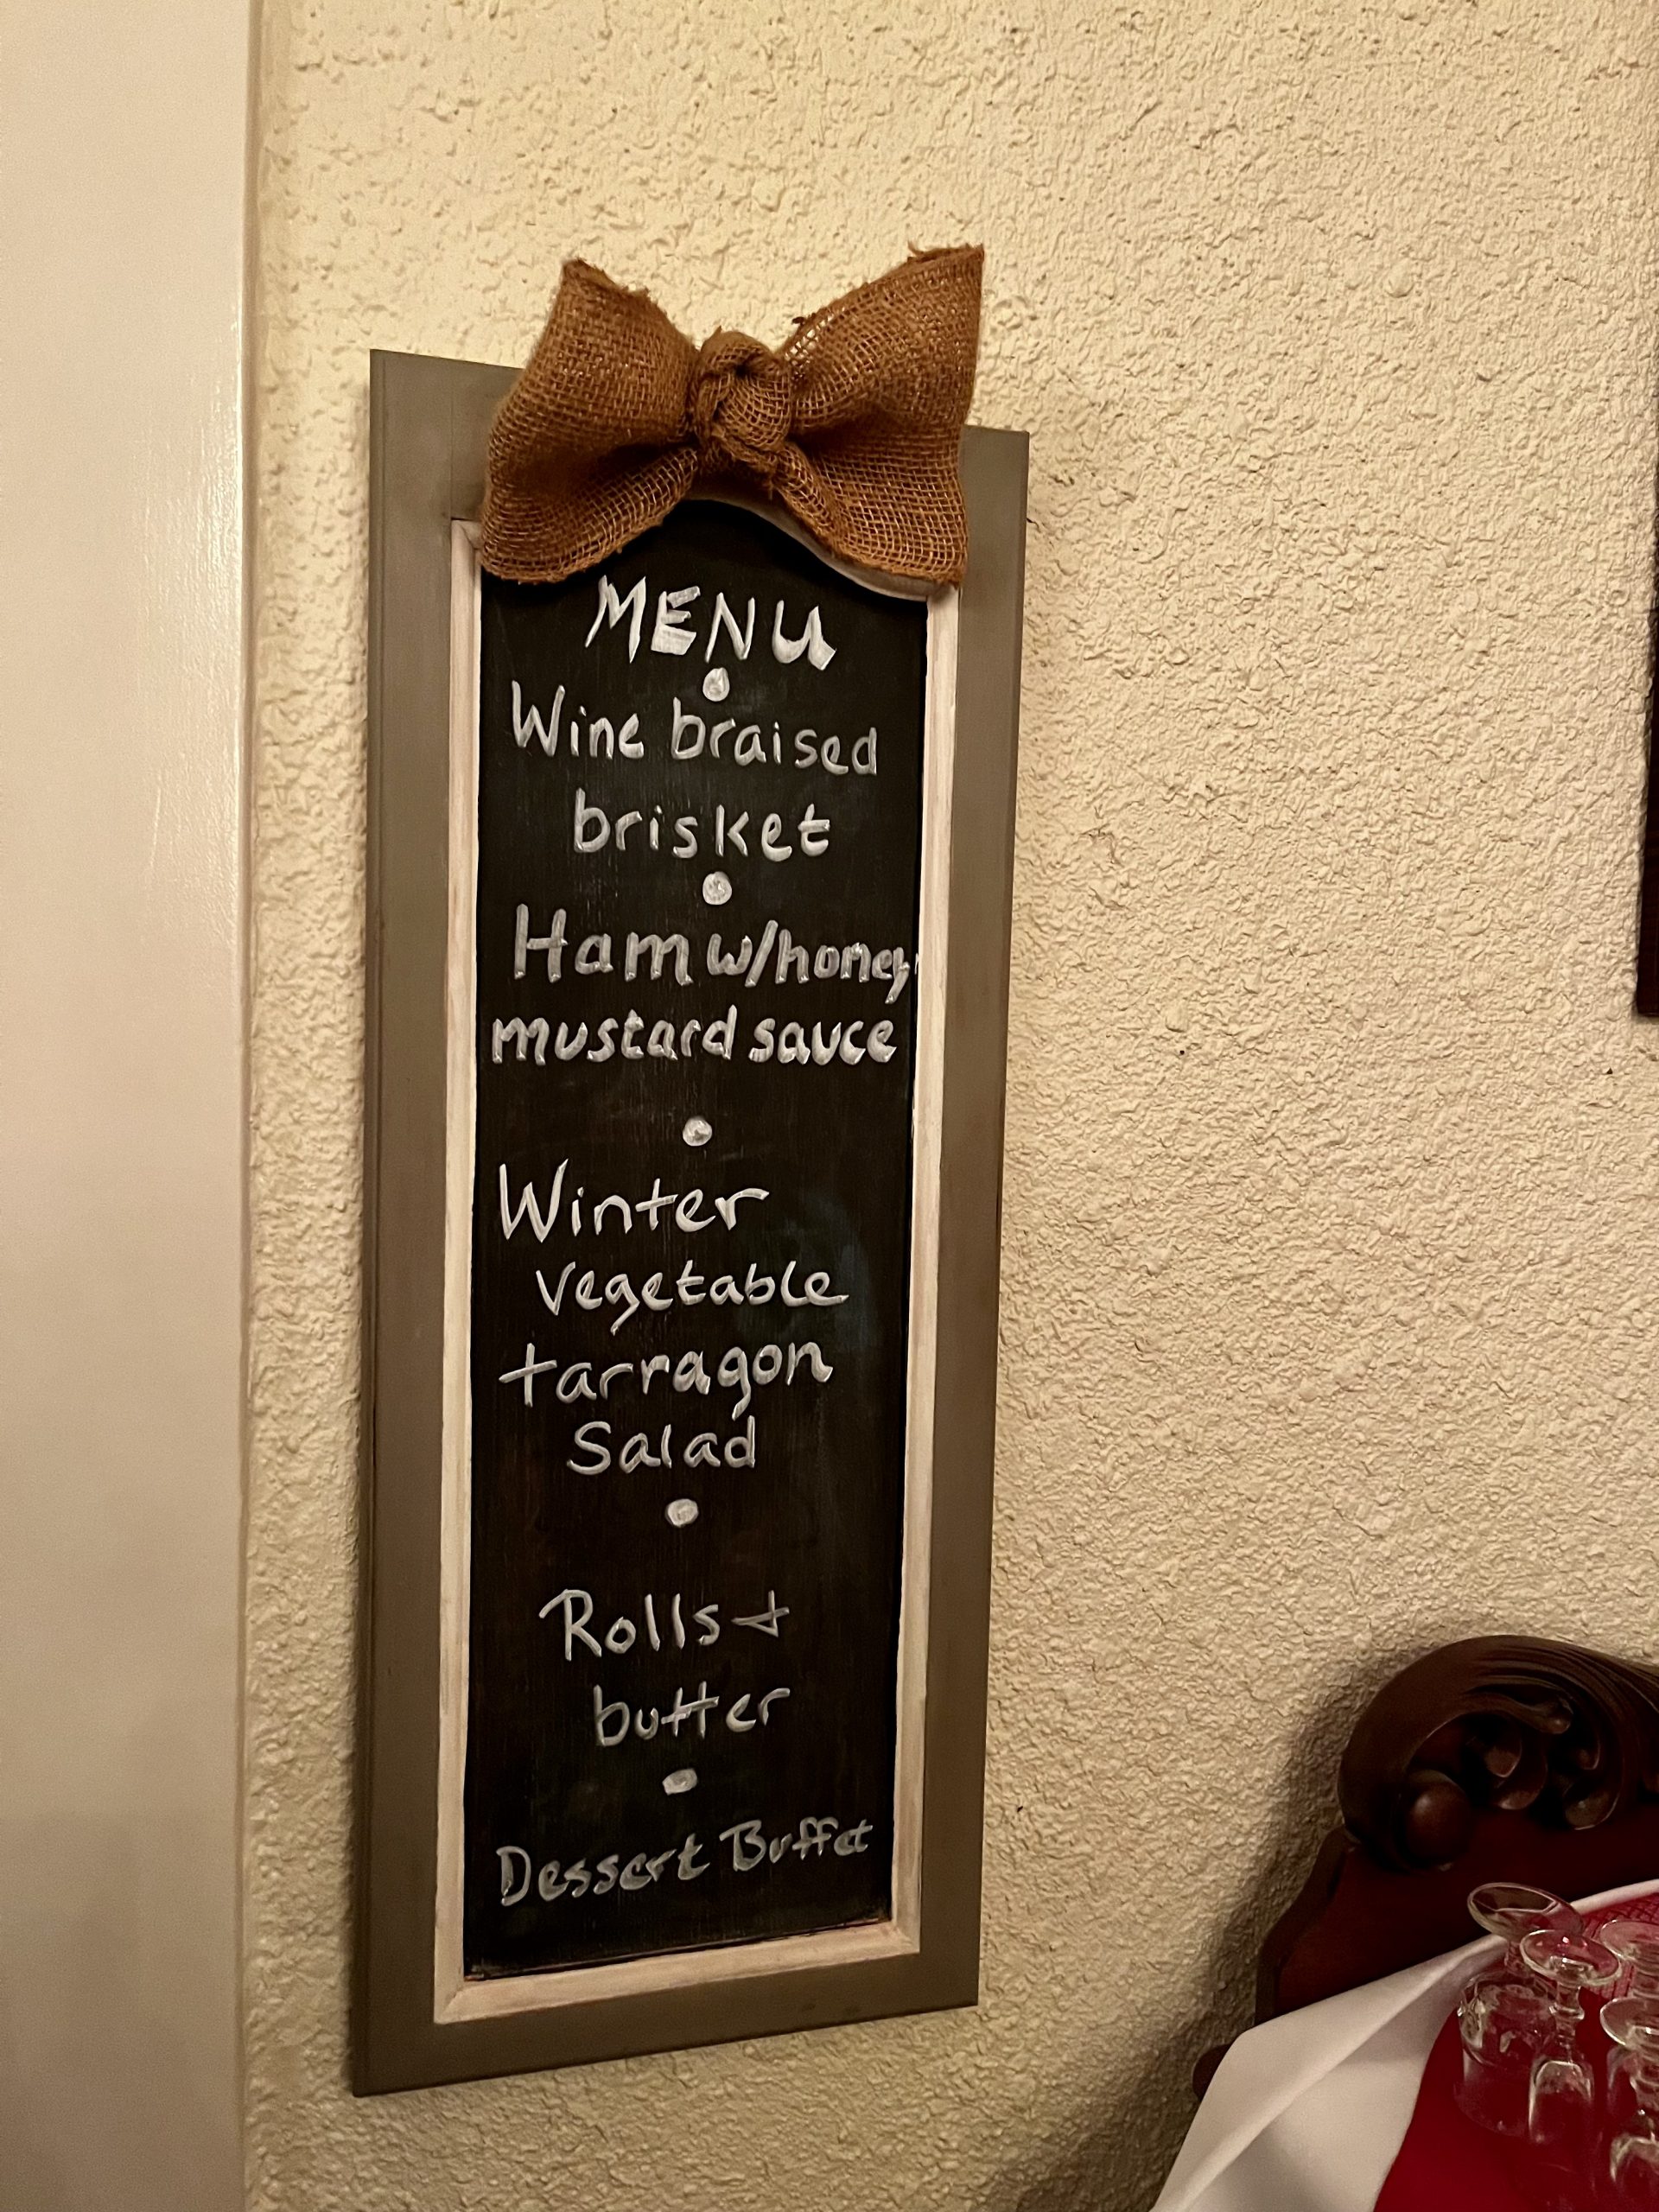 MENU
Wine braised
brisket
Ham w/honey
mustard sauce
Winter
vegetable
tarragon
Salad
Rolls +
butter
Dessert Buffet